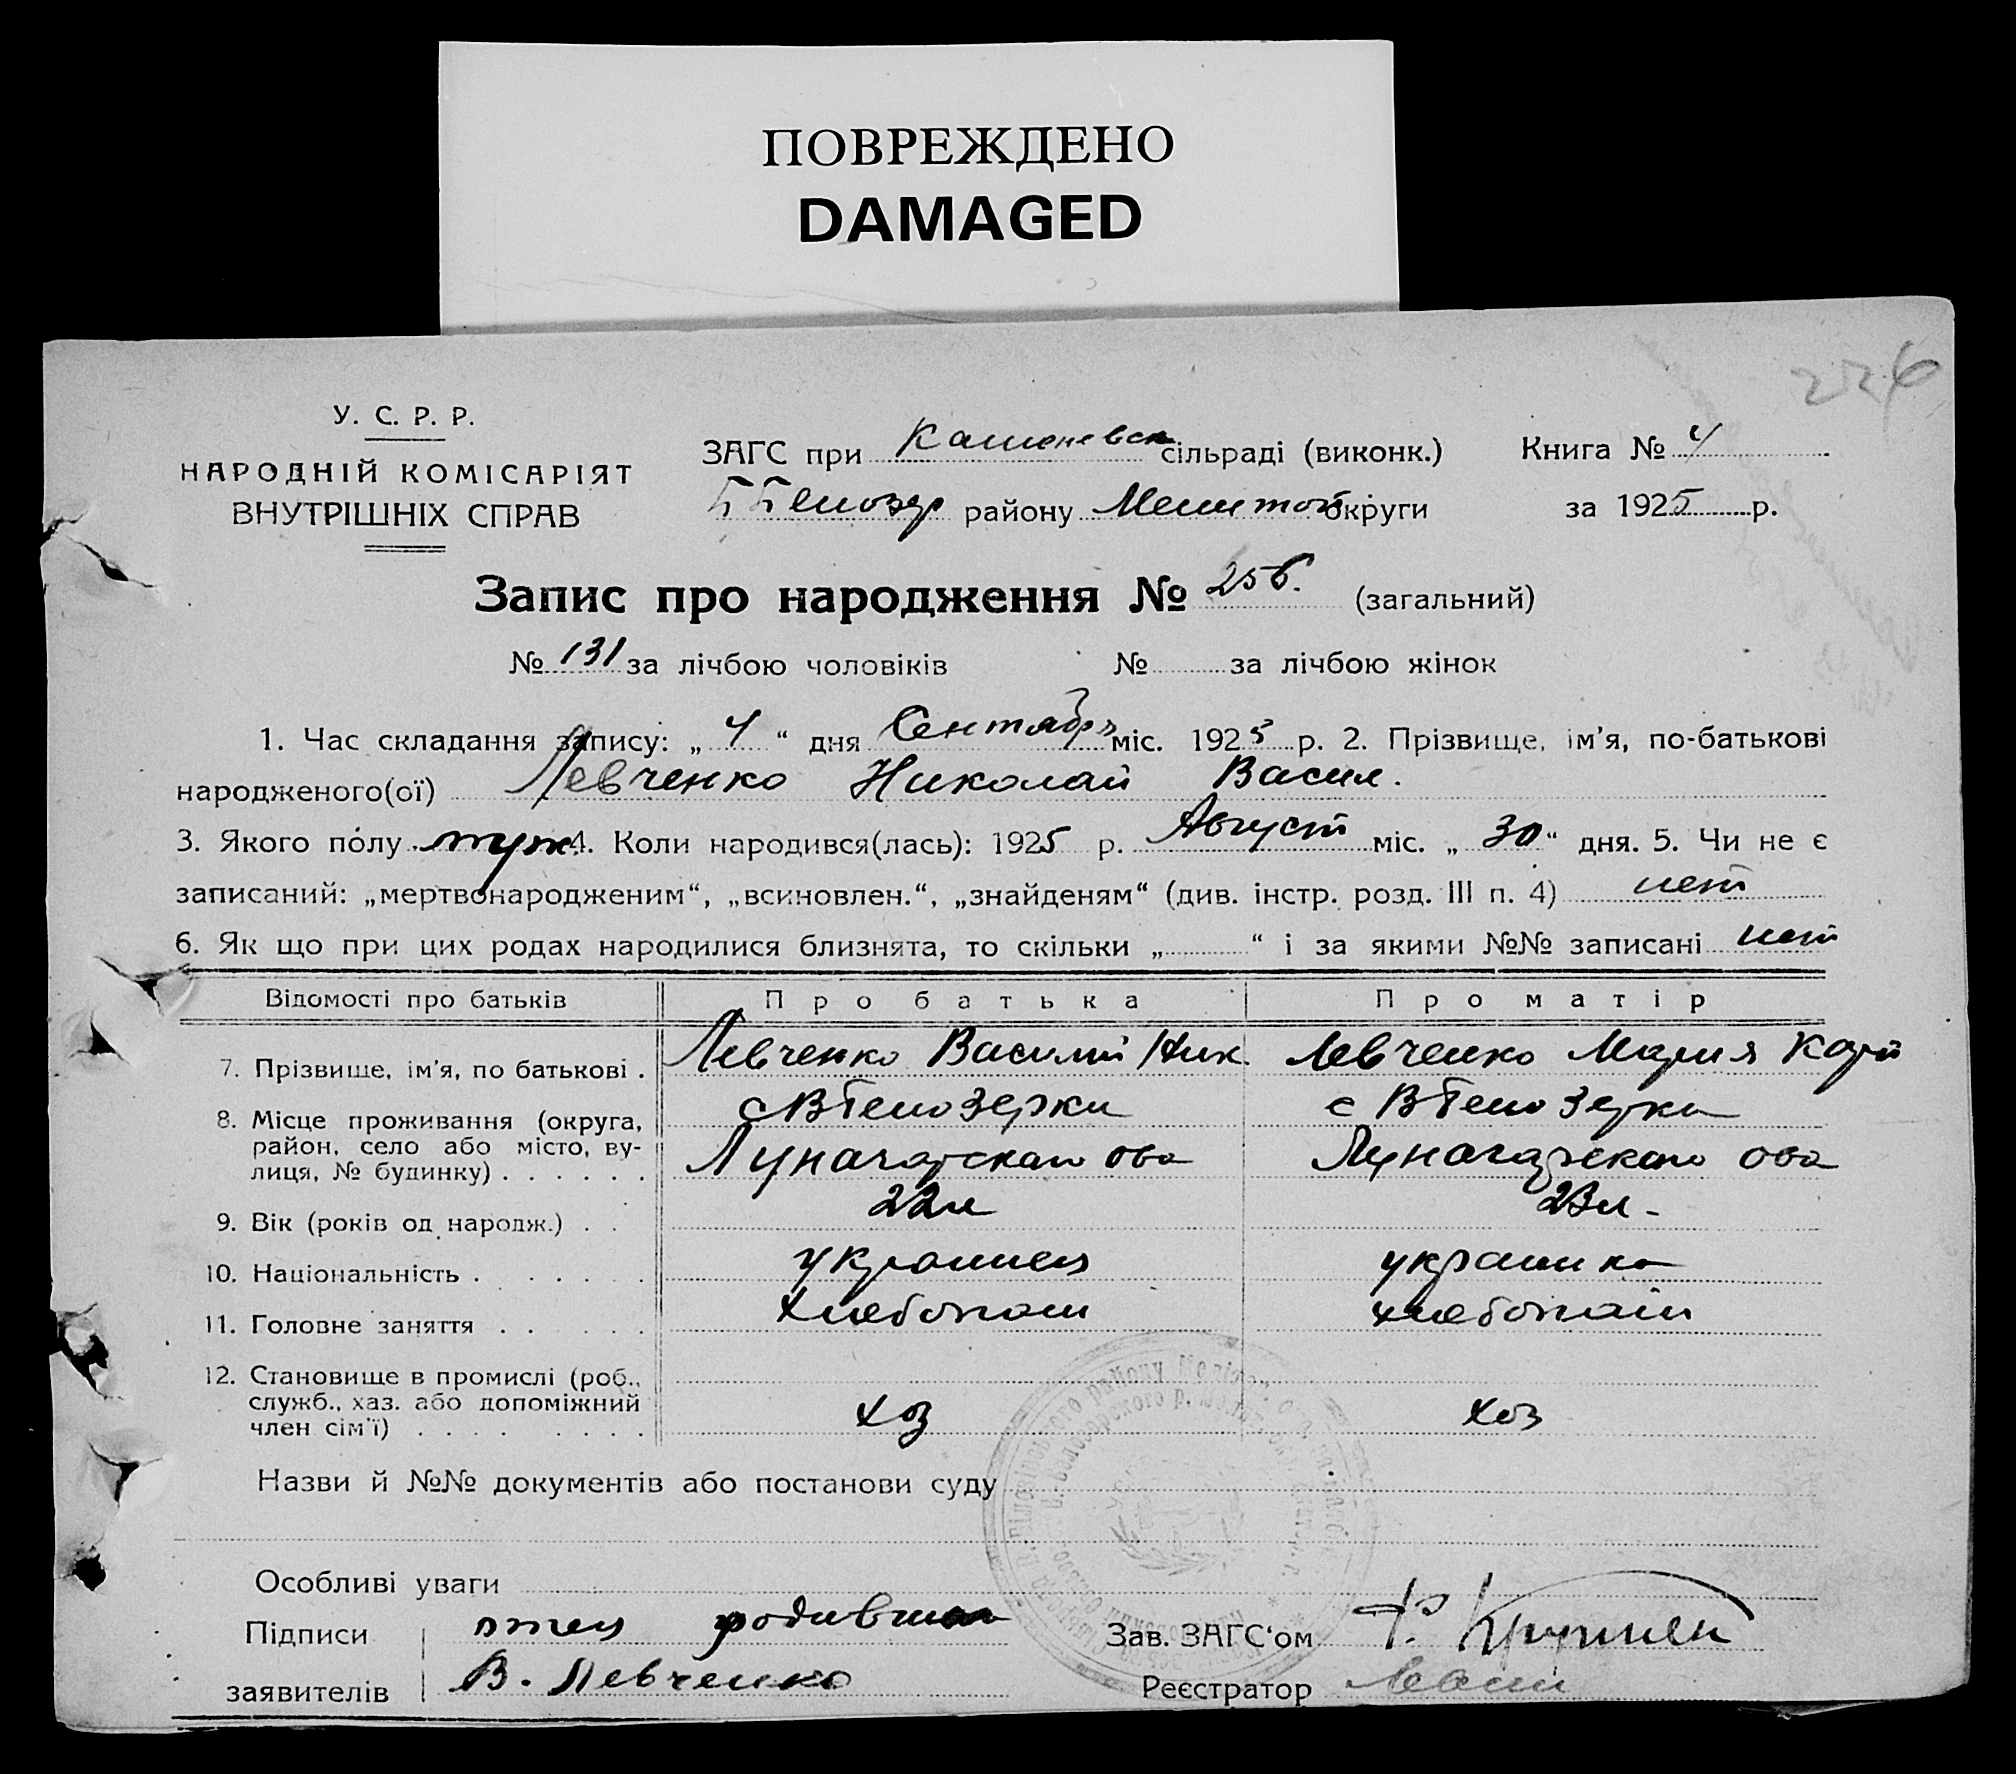 ПОВРЕЖДЕНО
DAMAGED
226
У. С. Р. Р.
НАРОДНІЙ КОМІСАРІЯТ
ВНУТРІШНІХ СПРАВ
ЗАГС при Каменевск сільраді (виконк.) Книга № 4
району Мелитоп округи за 1925 р.
Запис про народження № 256. (загальний)
№ 131 за лічбою чоловіків № за лічбою жінок
1. Час складання запису: „ 4 “ дня Сентябрь міс. 1925 р. 2. Прізвище, ім'я, по-батькові
народженого(ої) Левченко Николай Васил.
3. Якого полу муж. 4. Коли народився(лась): 1925 р. Август міс. „ 30 “ дня. 5. Чи не є
записаний: „мертвонародженим“, „всиновлен.“, „знайденям“ (див. інстр. розд. III п. 4) нет
6. Як що при цих родах народилися близнята, то скільки „ “ і за якими №№ записані нет
Відомості про батьків Про батька Про матір
7. Прізвище, ім'я, по батькові . Левченко Василий Ник. Левченко Мария
8. Місце проживання (округа, с ВБелозерки с ВБелозерки
район, село або місто, ву-
лиця, № будинку) . . . . . . Луначарская ова Луначарская ова
9. Вік (років од народж.) . . 22л 23л.
10. Національність . . . . . . украинец украинка
11. Головне заняття . . . . . хлебопаш хлебопаш
12. Становище в промислі (роб.,
служб., хаз. або допоміжний хоз хоз
член сім'ї) . . . . . . . .
Назви й №№ документів або постанови суду
Особливі уваги
Підписи отец родивш Зав. ЗАГС‘ом
заявителів В. Левченко Реєстратор